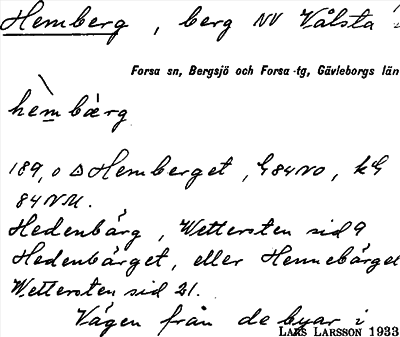 Hemberg, berg NV Vålsta
Forsa sn, Bergsjö och Forsa tg, Gävleborgs län
hèmbärg
189,0 Δ Hemberget, G84NO, kG
84NM.
Hedenbärg, Wettersten sid 9
Hedenbärget, eller Hennebärget
Wettersten sid 21.
Vägen från de byar i
LARS LARSSON 1933